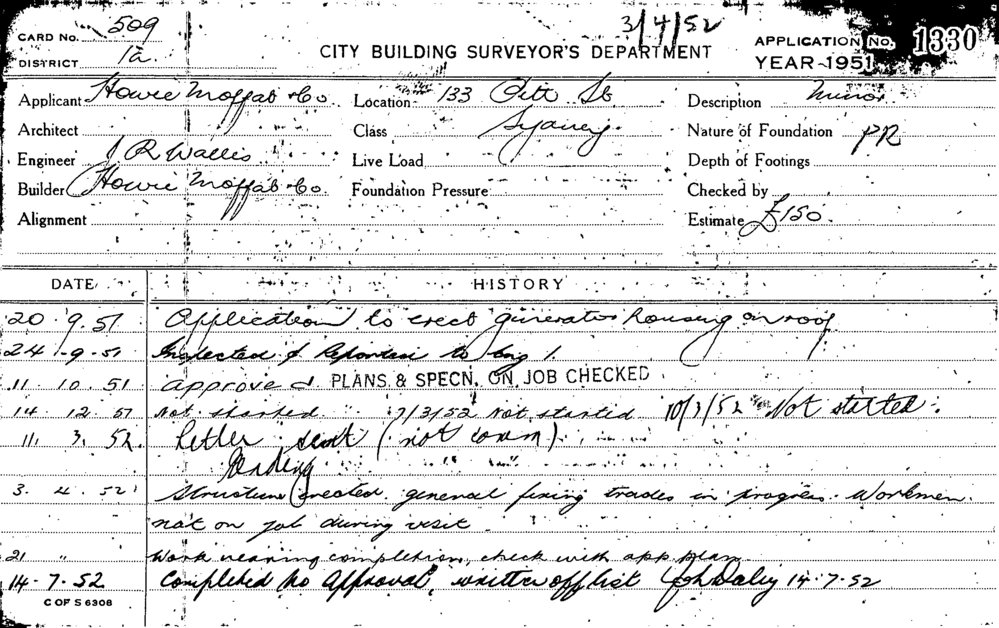 3/4/52
CARD No. 509
DISTRICT 1a.
CITY BUILDING SURVEYOR'S DEPARTMENT
APPLICATION No. 1330
YEAR 1951
Applicant Howie Moffat & Co. Location 133 Pitt St Description Minor
Architect Class Sydney. Nature of Foundation PR
Engineer J R Wallis Live Load Depth of Footings
Builder Howie Moffat & Co. Foundation Pressure Checked by
Alignment Estimate £150.
DATE HISTORY
20.9.51 Application to erect generator housing on roof
24-9-51 Inspected & Reported to Eng 1.
11.10.51 approved PLANS & SPECN. ON JOB CHECKED
14.12.51 Not started 7/3/52 Not started 10/3/52 Not started.
11.3.52. Letter sent (not comm)
Pending
3.4.52 Structure erected general fixing trades in progress. Workmen
not on job during visit.
21 " Work nearing completion, check with app plan
14.7.52 Completed no approval, written off list 14.7.52
C OF S 6308